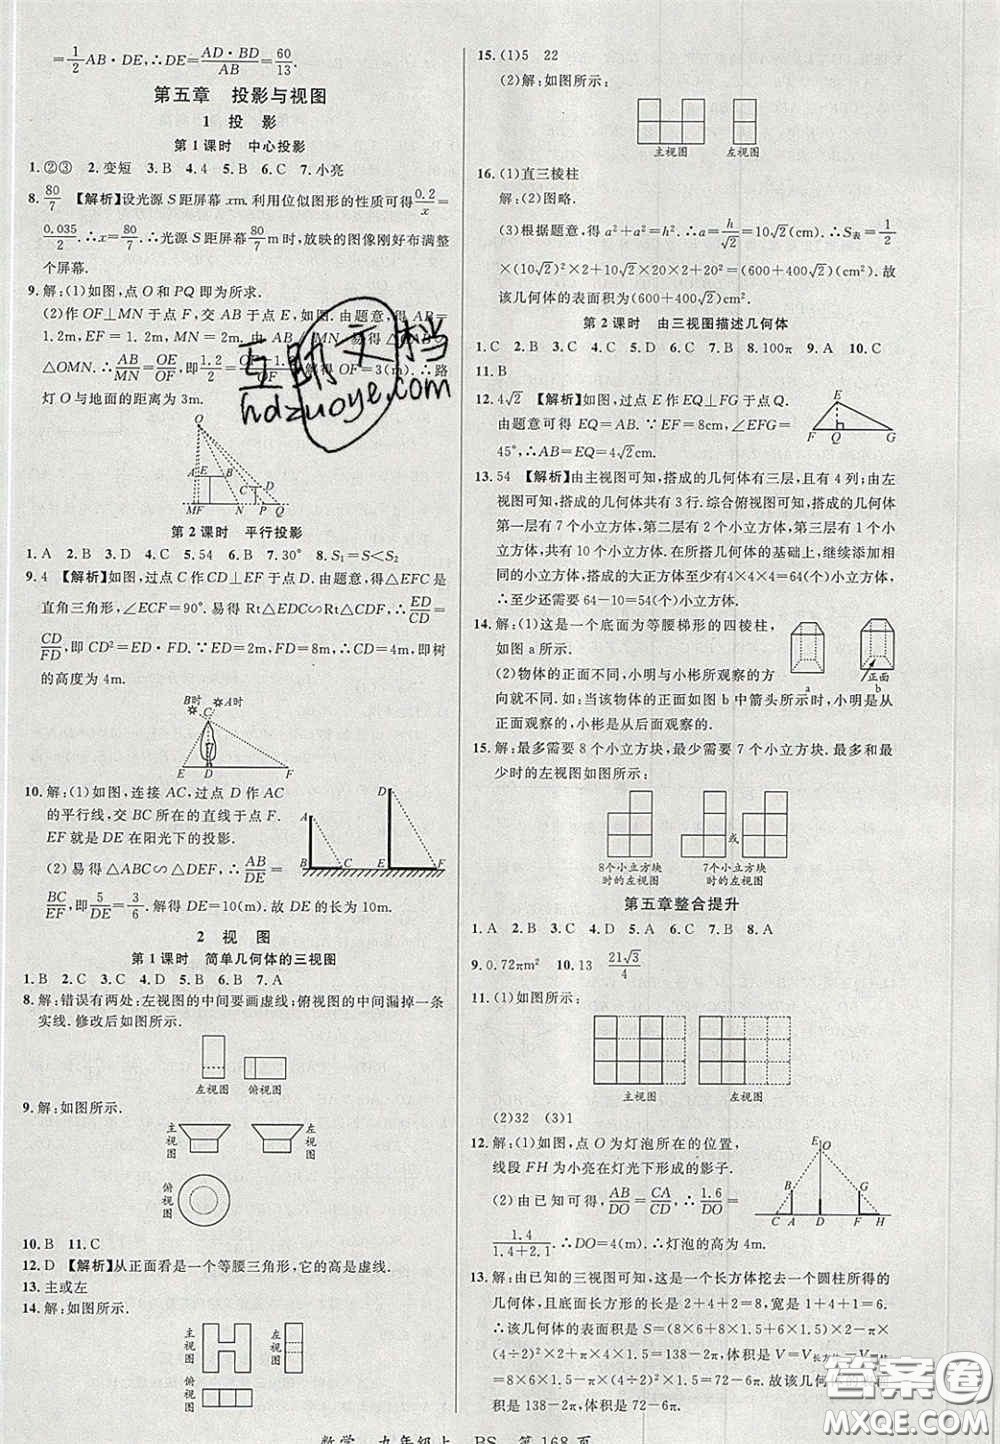 =1/2 AB·DE,∴DE=AD·BD/AB=60/13.
第五章 投影与视图
1 投 影
第1课时 中心投影
1.②③ 2.变短 3.B 4.4 5.B 6.C 7.小亮
8.80/7 【解析】设光源S距屏幕 xm.利用位似图形的性质可得0.2/x=
0.035/2.∴x=80/7.∴光源S距屏幕80/7m时,放映的图像刚好布满整
个屏幕.
9.解:(1)如图,点O和PQ即为所求.
(2)作OF⊥MN于点F,交AB于点E,如图.由题意,得AB=
1.2m,EF=1.
△OMN.∴AB/MN=OE/OF,即
灯O与地面的距离为3m.
互助文档
hdzuoye.com
O
A E B C D
MF N P Q
第2课时 平行投影
1.A 2.B 3.D 4.C 5.54 6.B 7.30° 8.S₁=S<S₂
9.4 【解析】如图,过点C作CD⊥EF于点D.由题意,得△EFC是
直角三角形,∠ECF=90°.易得Rt△EDC∽Rt△CDF,∴ED/CD=
CD/FD,即CD²=ED·FD.∵ED=2m,FD=8m,∴CD=4m,即树
的高度为4m.
B时 A时
C
E D F
10.解:(1)如图,连接AC,过点D作AC
的平行线,交BC所在的直线于点F.
EF就是DE在阳光下的投影.
(2)易得△ABC∽△DEF,∴AB/DE=
BC/EF,即5/DE=3/6.解得DE=10(m).故DE的长为10m.
D
A
B C E F
2 视 图
第1课时 简单几何体的三视图
1.B 2.C 3.C 4.A 5.C 6.D 7.A
8.解:错误有两处:左视图的中间要画虚线;俯视图的中间漏掉一条
实线.修改后如图所示.
左视图 俯视图
9.解:如图所示.
主视图 左视图
俯视图
10.B 11.C
12.D 【解析】从正面看是一个等腰三角形,它的高是虚线.
13.主或左
14.解:如图所示.
主视图 左视图
俯视图
15.(1)5 22
(2)解:如图所示:
主视图 左视图
16.(1)直三棱柱
解:(2)图略.
(3)根据题意,得a²+a²=h².∴a=h/√2=10√2(cm).∴S表=1/2
×(10√2)²×2+10√2×20×2+20²=600+400√2(cm²).故
该几何体的表面积为(600+400√2)cm².
第2课时 由三视图描述几何体
1.C 2.C 3.B 4.A 5.D 6.B 7.B 8.100π 9.A 10.C
11.B
12.4√2 【解析】如图,过点E作EQ⊥FG于点Q.
由题意可得EQ=AB.∵EF=8cm,∠EFG=
45°,∴AB=EQ=4√2cm.
E
F Q G
13.54 【解析】由主视图可知,搭成的几何体有三层,且有4列;由左
视图可知,搭成的几何体共有3行.综合俯视图可知,搭成的几何体
第一层有7个小立方体,第二层有2个小立方体,第三层有1个小立
方体,共有10个小立方体.∵在所搭几何体的基础上,继续添加相
同的小立方体,∴搭成的大正方体至少有4×4×4=64(个)小立方体.
∴至少还需要64-10=54(个)小立方体.
14.解:(1)这是一个底面为等腰梯形的四棱柱,
如图a所示.
(2)物体的正面不同,小明与小彬所观察的方
向就不同.如:当该物体的正面如图b中箭头所示时,小明是从
正面观察的,小彬是从后面观察的.
a 正面 b
15.解:最多需要8个小立方块,最少需要7个小立方块.最多和最
少时的左视图如图所示:
或
8个小立方块时的左视图 7个小立方块时的左视图
第五章整合提升
1.A 2.B 3.D 4.C 5.C 6.C 7.B 8.A
9.0.72πm² 10.13 21√3/4
11.(1)如图所示:
主视图 左视图
(2)32 (3)1
12.解:(1)如图,点O为灯泡所在的位置,
线段FH为小亮在灯光下形成的影子.
(2)由已知可得,AB/DO=CA/CD,∴1.6/DO=
1.4/(1.4+2.1).∴DO=4(m).∴灯泡的高为4m.
E O
B G
C A D F H
13.解:由已知的三视图可知,这是一个长方体挖去一个圆柱所得的
几何体,且底面长方形的长是2+4+2=8,宽是1+4+1=6.
∴该几何体的表面积是S=(8×6+8×1.5+6×1.5)×2-π×
(4÷2)²×2+4π×1.5=138-2π.体积是V=V长方体-V圆柱
=8×6×1.5-π×(4÷2)²×1.5=72-6π.故该几何体的表面
积是138-2π,体积是72-6π.
答案圈
数学 九年级上 BS 第168页